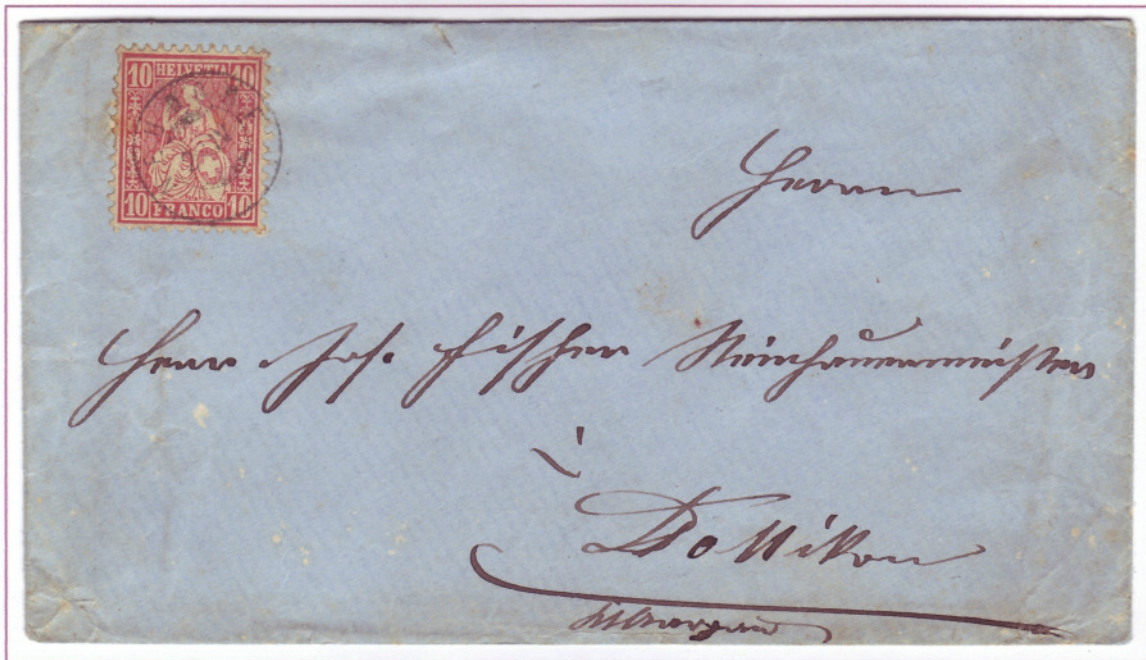 10 HELVETIA 10
10 FRANCO 10
Herrn
Herr Jos. Fischer Steinhauermeister
à
Dottikon
Aargau